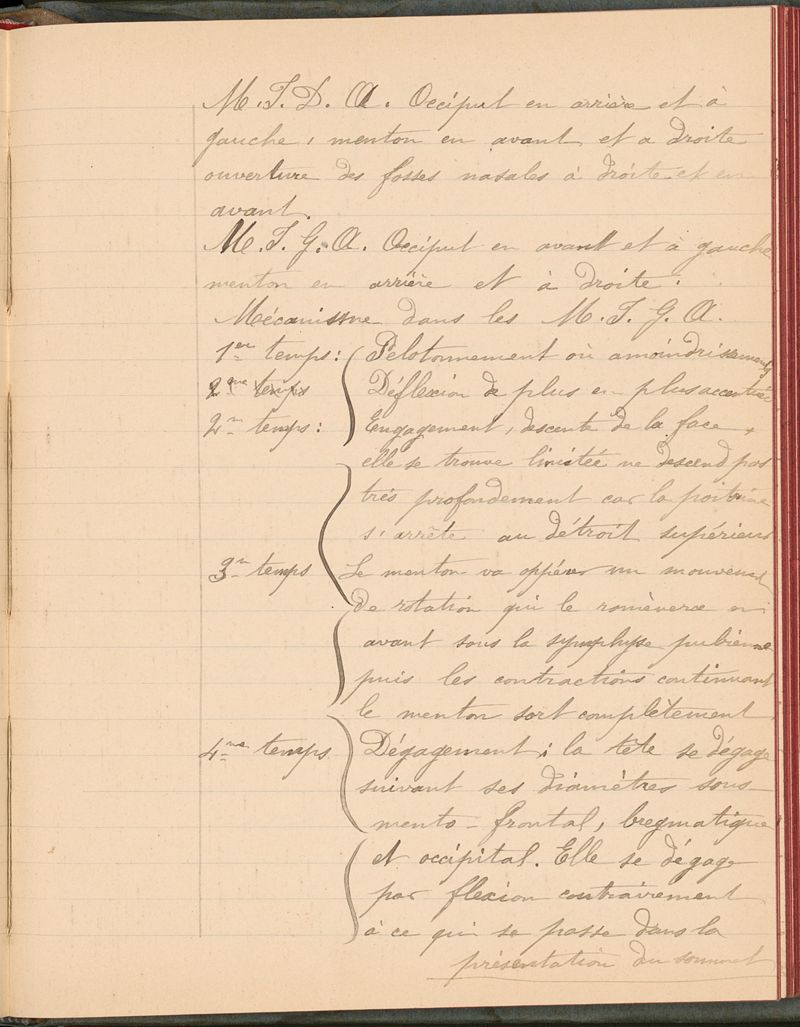 M.I.D.A. Occiput en arrière et à
gauche, menton en avant et a droite
ouverture des fosses nasales à droite et en
avant.
M.I.G.A. Occiput en avant et à gauche
menton en arrière et à droite.
Mécanisme dans les M.I.G.A.
1er temps: Pelotonnement ou amoindrissement
2me temps Déflexion de plus en plus accentuée
2m temps: Engagement, descente de la face,
elle se trouve limitée ne descend pas
très profondement car la poitrine
s'arrête au détroit supérieur
3m temps Le menton va opérer un mouvement
de rotation qui le ramènera en
avant sous la symphyse pubienne
puis les contractions continuant
le menton sort complètement
4me temps Dégagement; la tête se dégage
suivant ses diamètres sous-
mento-frontal, bregmatique
et occipital. Elle se dégage
par flexion contrairement
à ce qui se passe dans la
présentation du sommet